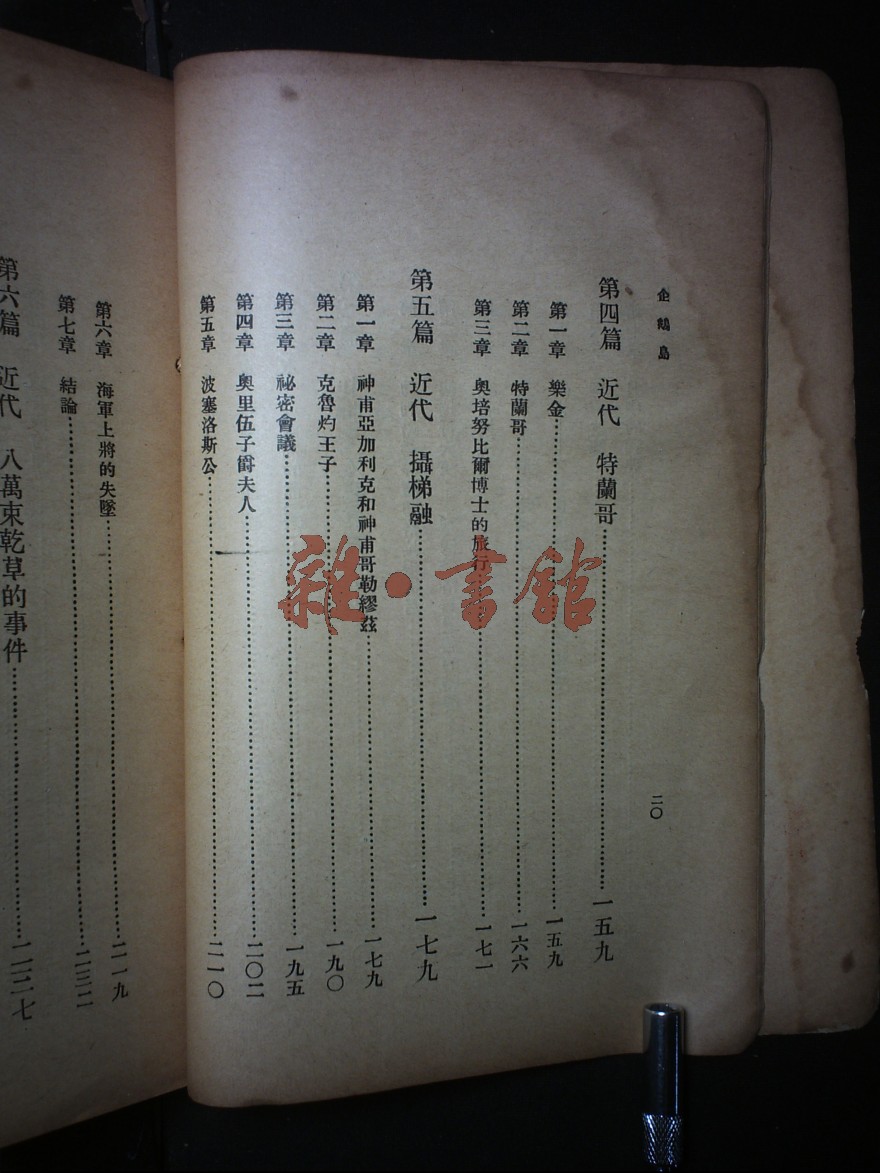 企鵝島
二〇
第四篇 近代 特蘭哥……一五九
第一章 樂金……一五九
第二章 特蘭哥……一六六
第三章 奧培努比爾博士的旅行……一七一
第五篇 近代 攝梯融……一七九
第一章 神甫亞加利克和神甫哥勒繆茲……一七九
第二章 克魯灼王子……一九〇
第三章 祕密會議……一九五
第四章 奧里伍子爵夫人……二〇二
第五章 波塞洛斯公……二一〇
第六章 海軍上將的失墜……二一九
第七章 結論……二三二
第六篇 近代 八萬束乾草的事件……二三七
雜·書館